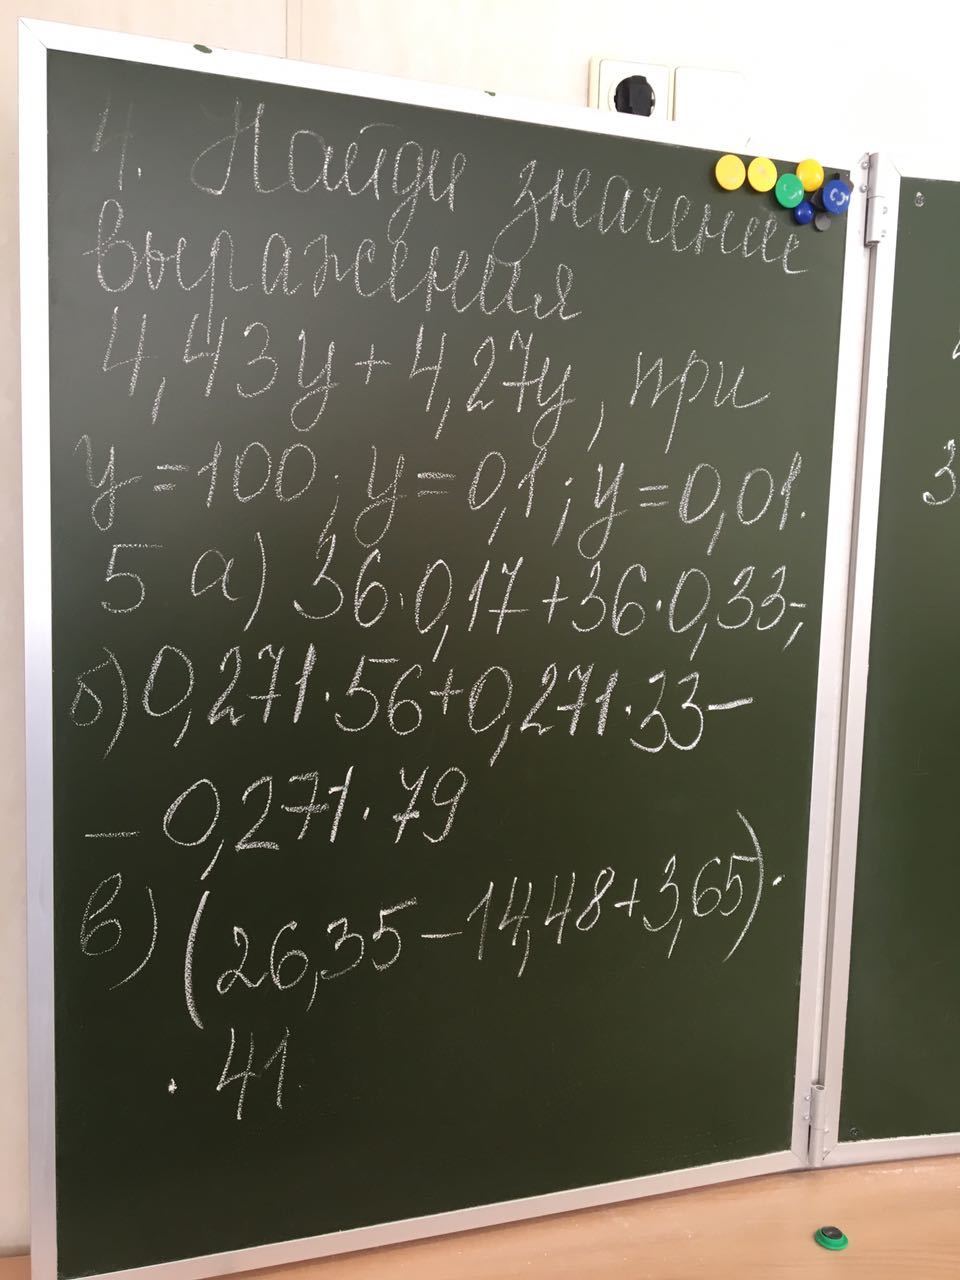 4. Найди значение
выражения
4,43у + 4,27у, при
у = 100; у = 0,1; у = 0,01.
5 а) 36·0,17 + 36·0,33;
б) 0,271·56 + 0,271·33 –
– 0,271·79
в) (26,35 – 14,48 + 3,65)·
· 41
3